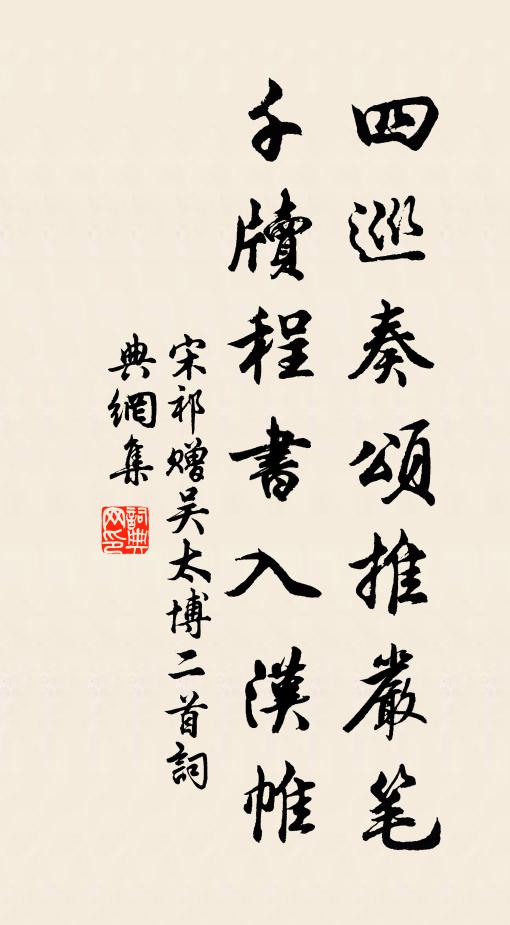 四巡奏頌推嚴笔
千牘程書入漢帷
宋祁贈吴太博二首詞
典網集
詞典
网印